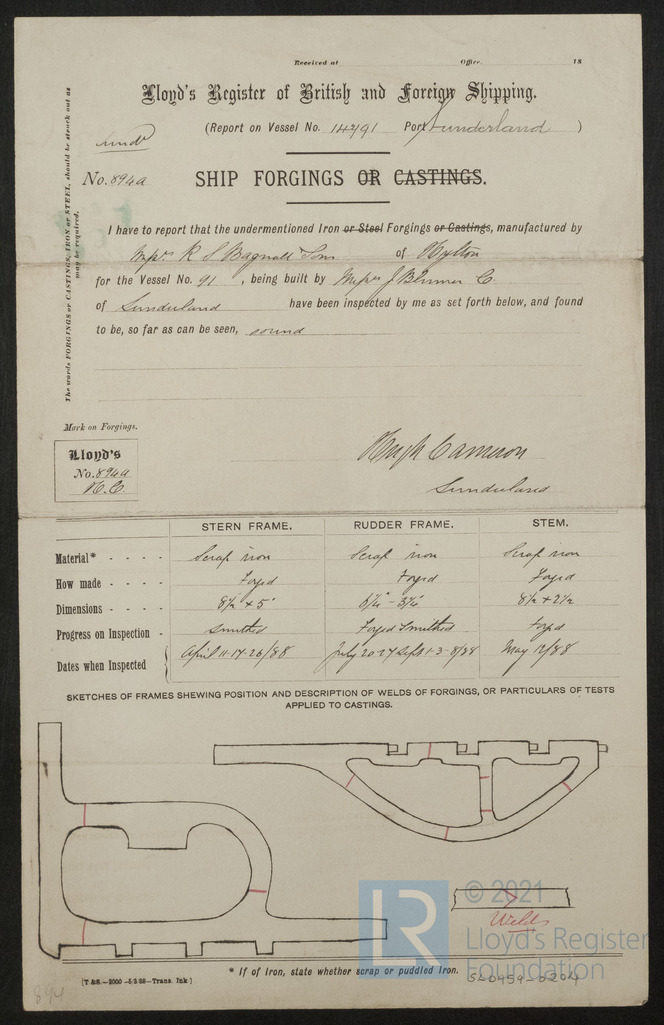 Received at Office. 18
Lloyd's Register of British and Foreign Shipping.
(Report on Vessel No. 14791 Port Sunderland )
Sund
No. 894a
SHIP FORGINGS OR CASTINGS.
The words FORGINGS or CASTINGS, IRON or STEEL, should be struck out as may be required.
I have to report that the undermentioned Iron or Steel Forgings or Castings, manufactured by
Messrs R S Bagnall & Son of Hylton
for the Vessel No. 91 , being built by Messrs J Blumer Co.
of Sunderland have been inspected by me as set forth below, and found
to be, so far as can be seen, sound
Mark on Forgings.
Lloyd's
No. 894a
H.C.
Hugh Cameron
Sunderland
STERN FRAME. RUDDER FRAME. STEM.
Material* - - - - Scrap iron Scrap iron Scrap iron
How made - - - - Forged Forged Forged
Dimensions - - - - 8½ × 5 8½ × 2½
Progress on Inspection - Smithed Forged Smithed Forged
Dates when Inspected April 11-17-26/88 July 20-27 Sept 1-3-8/88 May 12/88
SKETCHES OF FRAMES SHEWING POSITION AND DESCRIPTION OF WELDS OF FORGINGS, OR PARTICULARS OF TESTS
APPLIED TO CASTINGS.
Welds
LR
© 2021
Lloyd's Register
Foundation
* If of Iron, state whether scrap or puddled Iron.
SLD959-0204
[T &S.—2000 -5/3 88—Trans. Ink]
894